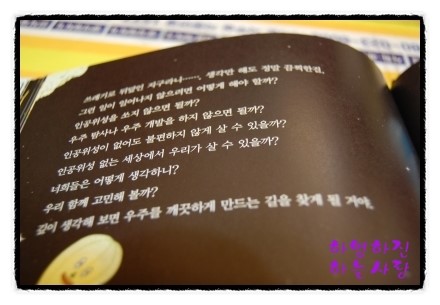 쓰레기로 뒤덮인 지구라니……, 생각만 해도 정말 끔찍한걸.
그런 일이 일어나지 않으려면 어떻게 해야 할까?
인공위성을 쏘지 않으면 될까?
우주 탐사나 우주 개발을 하지 않으면 될까?
인공위성이 없어도 불편하지 않게 살 수 있을까?
인공위성 없는 세상에서 우리가 살 수 있을까?
너희들은 어떻게 생각하니?
우리 함께 고민해 볼까?
깊이 생각해 보면 우주를 깨끗하게 만드는 길을 찾게 될 거야.